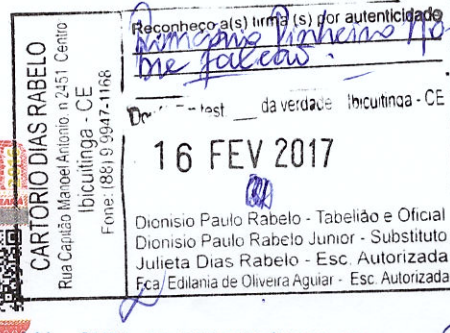 CARTORIO DIAS RABELO
Rua Capitão Manoel Antonio, n 2451 Centro
Ibicuitinga - CE
Fone: (88) 9 9947-1168
Reconheço a(s) firma (s) por autenticidade
Pinheiro
Falcão.
da verdade Ibicuitinga - CE
16 FEV 2017
Dionisio Paulo Rabelo - Tabelião e Oficial
Dionisio Paulo Rabelo Junior - Substituto
Julieta Dias Rabelo - Esc. Autorizada
Fca Edilania de Oliveira Aguiar - Esc. Autorizada